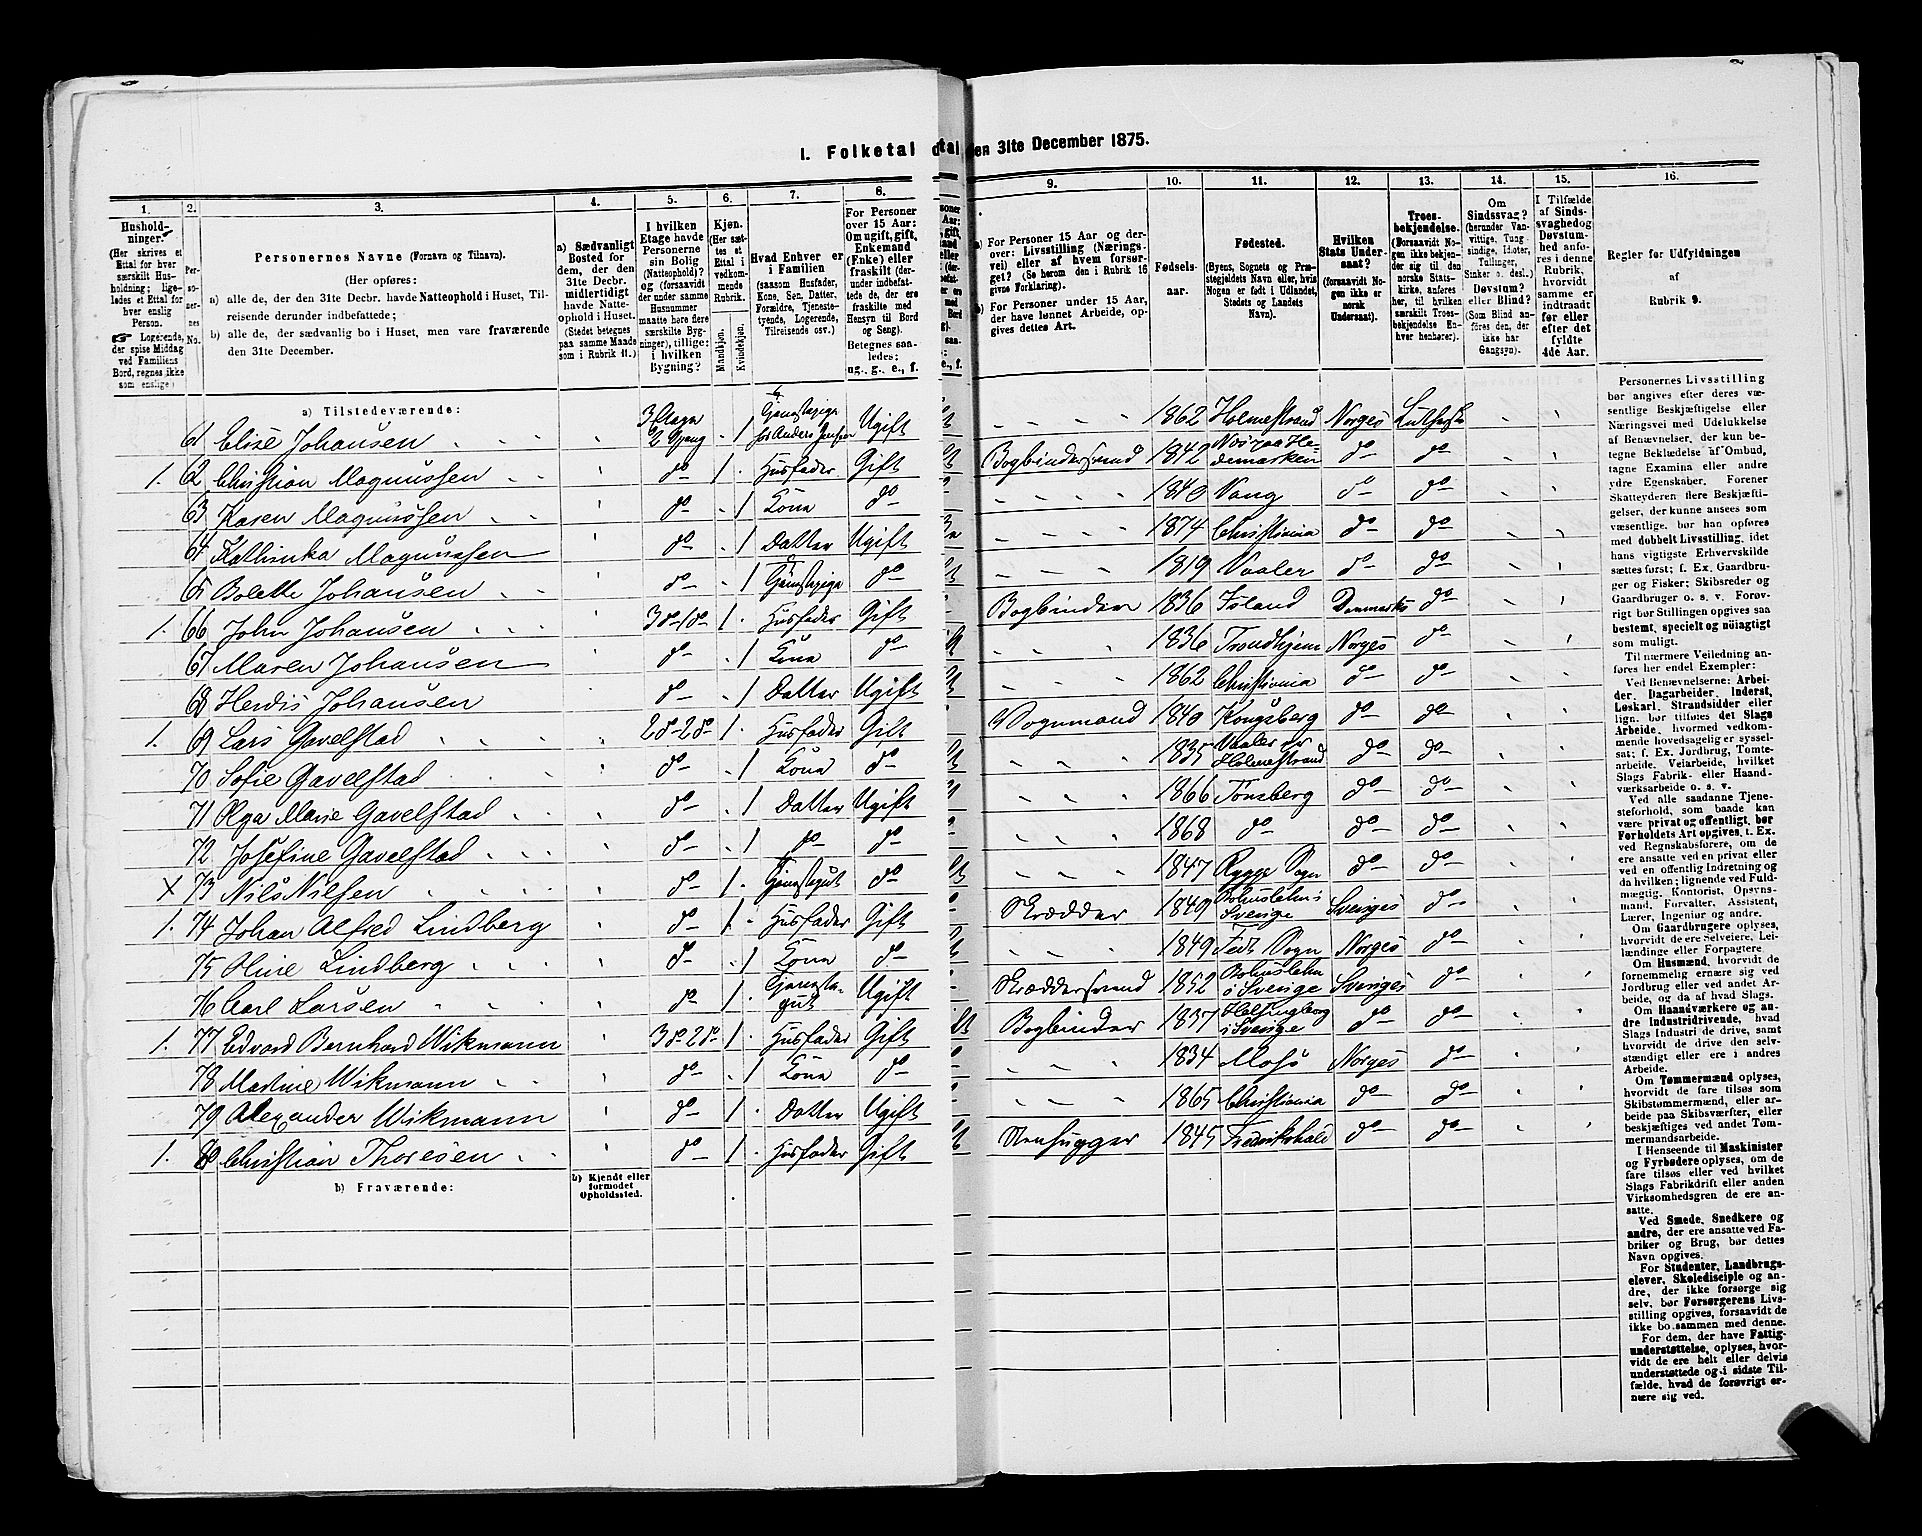 I. Folketal d tal den 31te December 1875.
1. 2. 3. 4. 5. 6. 7. 8. 9. 10. 11. 12. 13. 14. 15. 16.
Hushold-
ninger.
(Her skrives et
Ettal for hver
særskilt Hus-
holdning; lige-
ledes et Ettal for
hver enslig
Person.
☞ Logerende,
der spise Middag
ved Familiens
Bord, regnes ikke
som enslige.)
Per-
so-
ner-
nes
No.
Personernes Navne (Fornavn og Tilnavn).
(Her opføres:
a) alle de, der den 31te Decbr. havde Natteophold i Huset, Til-
reisende derunder indbefattede;
b) alle de, der sædvanlig bo i Huset, men vare fraværende
den 31te December.
a) Sædvanligt
Bosted for
dem, der den
31te Decbr.
midlertidigt
havde Natte-
ophold i Huset.
(Stedet betegnes
paa samme Maade
som i Rubrik 11.)
I hvilken
Etage havde
Personerne
sin Bolig
(Natteophold)?
og (forsaavidt
der under samme
Husnummer
maatte høre flere
særskilte Byg-
ninger), tillige:
i hvilken
Bygning?
Kjøn.
(Her sæt-
tes et
Ettal i
vedkom-
mende
Rubrik.
Mandkjøn.
Kvindekjøn.
Hvad Enhver er
i Familien
(saasom Husfader,
Kone, Søn, Datter,
Forældre, Tjeneste-
tyende, Logerende,
Tilreisende osv.)
For Personer
over 15 Aar:
Om ugift, gift,
Enkemand
(Enke) eller
fraskilt (der-
under indbefat-
tede de, der ere
fraskilte med
Hensyn til Bord
og Seng).
Betegnes saa-
ledes:
ug., g., e., f.
a) For Personer 15 Aar og der-
over: Livsstilling (Nærings-
vei) eller af hvem forsør-
get? (Se herom den i Rubrik 16
givne Forklaring).
b) For Personer under 15 Aar,
der have lønnet Arbeide, op-
gives dettes Art.
Fødsels-
aar.
Fødested.
(Byens, Sognets og Præ-
stegjeldets Navn eller, hvis
Nogen er født i Udlandet,
Stedets og Landets
Navn).
Hvilken
Stats Under-
saat?
(forsaavidt No-
gen ikke er
norsk
Undersaat).
Troes-
bekjendelse.
(Forsaavidt No-
gen ikke bekjen-
der sig til den
norske Stats-
kirke, anføres
her, til hvilken
særskilt Troes-
bekjendelse En-
hver henhører).
Om
Sindssvag?
(herunder Van-
vittige, Tung-
sindige, Idioter,
Tullinger,
Sinker o. desl.).
Døvstum?
eller Blind?
(Som Blind an-
føres den, der
ikke har
Gangsyn).
I Tilfælde
af Sinds-
svaghed og
Døvstum-
hed anfø-
res i denne
Rubrik,
hvorvidt
samme er
indtraadt
før eller
efter det
fyldte
4de Aar.
Regler for Udfyldningen
af
Rubrik 9.
a) Tilstedeværende:
61 Elise Johansen 3 Etage 2 Opgang 1 Tjenestepige hos Anders Jenssen Ugift 1862 Holmestrand Norges Luthersk
1. 62 Christian Magnussen do 1 Husfader Gift Bogbindersvend 1842 Næs paa Hedemarken do do
63 Karen Magnussen do 1 Kone do 1840 Vang do do
64 Kathinka Magnussen do 1 Datter Ugift 1874 Christiania do do
65 Bolette Johansen do 1 Tjenestepige do 1819 Vaaler do do
1. 66 John Johansen 3 do 1 do 1 Husfader Gift Bogbinder 1836 Island Danmarks do
67 Maren Johansen do 1 Kone do 1836 Trondhjem Norges do
68 Herdis Johansen do 1 Datter Ugift 1862 Christiania do do
1. 69 Lars Gavelstad 2 do 2 do 1 Husfader Gift Vognmand 1840 Kongsberg do do
70 Sofie Gavelstad do 1 Kone do 1835 Vaaler v Holmestrand do do
71 Olga Marie Gavelstad do 1 Datter Ugift 1866 Tønsberg do do
72 Josefine Gavelstad do 1 do do 1868 do do do
x 73 Nils Nilsen do 1 Tjenestegut do 1847 Rygge Sogn do do
1. 74 Johan Alfred Lindberg do 1 Husfader Gift Skrædder 1849 Bohuslehn i Sverige Sveriges do
75 Oline Lindberg do 1 Kone do 1849 Fedt Sogn Norges do
76 Carl Larsen do 1 Tjenestegut Ugift Skræddersvend 1852 Bohuslehn i Sverige Sveriges do
1. 77 Edvard Bernhard Wikmann 3 do 2 do 1 Husfader Gift Bogbinder 1837 Helsingborg i Sverige do do
78 Martine Wikmann do 1 Kone do 1834 Moss Norges do
79 Alexander Wikmann do 1 Datter Ugift 1865 Christiania do do
1. 80 Christian Thoresen do 1 Husfader Gift Stenhugger 1845 Fredrikshald do do
b) Fraværende:
b) Kjendt eller
formodet
Opholdssted.
Personernes Livsstilling
bør angives efter deres væ-
sentlige Beskjæftigelse eller
Næringsvei med Udelukkelse
af Benævnelser, der kun be-
tegne Beklædelse af Ombud,
tagne Examina eller andre
ydre Egenskaber. Forener
Skatteyderen flere Beskjæfti-
gelser, der kunne ansees som
væsentlige, bør han opføres
med dobbelt Livsstilling, idet
hans vigtigste Erhvervskilde
sættes først; f. Ex. Gaardbru-
ger og Fisker; Skibsreder og
Gaardbruger o. s. v. Forøv-
rigt bør Stillingen opgives saa
bestemt, specielt og nøiagtigt
som muligt.
Til nærmere Veiledning an-
føres her endel Exempler:
Ved Benævnelserne: Arbei-
der, Dagarbeider, Inderst,
Løskarl, Strandsidder eller
lign. bør tilføies det Slags
Arbeide, hvormed vedkom-
mende hovedsagelig er syssel-
sat; f. Ex. Jordbrug, Tomte-
arbeide, Veiarbeide, hvilket
Slags Fabrik- eller Haand-
værksarbeide o. s. v.
Ved alle saadanne Tjene-
steforhold, som baade kan
være privat og offentligt, bør
Forholdets Art opgives, t. Ex.
ved Regnskabsførere, om de
ere ansatte ved en privat eller
ved en offentlig Indretning og
da hvilken; lignende ved Fuld-
mægtig, Kontorist, Opsyns-
mand, Forvalter, Assistent,
Lærer, Ingeniør og andre.
Om Gaardbrugere oplyses,
hvorvidt de ere Selveiere, Lei-
lændinge eller Forpagtere.
Om Husmænd, hvorvidt de
fornemmelig ernære sig ved
Jordbrug eller ved andet Ar-
beide, og da af hvad Slags.
Om Haandværkere og an-
dre Industridrivende, hvad
Slags Industri de drive, samt
hvorvidt de drive den selv-
stændigt eller ere i andres
Arbeide.
Om Tømmermænd oplyses,
hvorvidt de fare tilsøs som
Skibstømmermænd, eller ar-
beide paa Skibsværfter, eller
beskjæftiges ved andet Tøm-
mermandsarbeide.
I Henseende til Maskinister
og Fyrbødere oplyses, om de
fare tilsøs eller ved hvilket
Slags Fabrikdrift eller anden
Virksomhedsgren de ere an-
satte.
Ved Smede, Snedkere og
andre, der ere ansatte ved Fa-
briker og Brug, bør dettes
Navn opgives.
For Studenter, Landbrugs-
elever, Skoledisciple og an-
dre, der ikke forsørge sig
selv, bør Forsørgerens Livs-
stilling opgives, forsaavidt de
ikke bo sammen med denne.
For dem, der have Fattig-
understøttelse, oplyses, hvor-
vidt de ere helt eller delvis
understøttede og i sidste Til-
fælde, hvad de forøvrigt er-
nære sig ved.